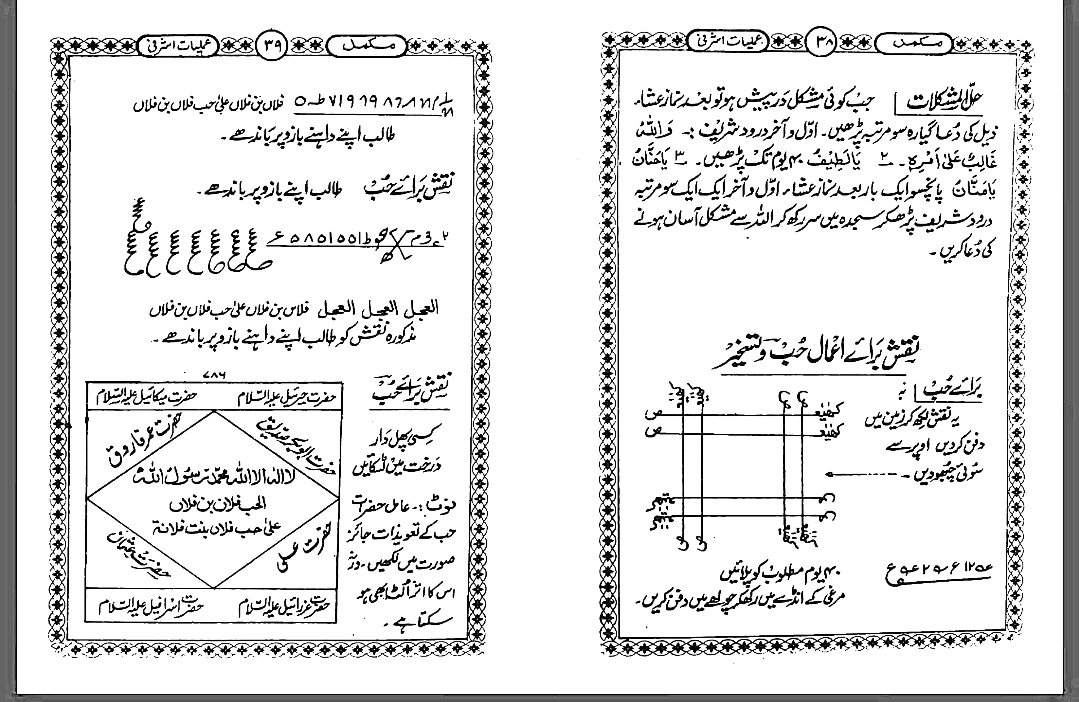 مکمل ۳۸ عملیات اشرفی
حل المشکلات جب کوئی مشکل درپیش ہو تو بعد نماز عشاء
ذیل کی دُعا گیارہ سو مرتبہ پڑھیں۔ اوّل و آخر درود شریف :۔ فَاللّٰهُ
غَالِبٌ عَلٰی اَمْرِهٖ۔ ۲ یَا لَطِیْفُ ۴۰ یوم تک پڑھیں۔ ۳ یَا حَنَّانُ
یَا مَنَّانُ پانچسو ایک بار بعد نماز عشاء اوّل و آخر ایک ایک سو مرتبہ
درود شریف پڑھکر سجدہ میں سر رکھ کر اللہ سے مشکل آسان ہونے
کی دُعا کریں۔
نقش برائے اعمال حُب و تسخیر
برائے حُب
یہ نقش لکھ کر زمین میں
دفن کردیں اوپر سے
سوئی چبھودیں۔
ص
ص
۴۰ یوم مطلوب کو پلائیں
مرغی کے انڈے میں رکھکر چولھے میں دفن کریں۔
مکمل ۳۹ عملیات اشرفی
فلاں بن فلاں علیٰ حب فلاں بن فلاں
طالب اپنے داہنے بازو پر باندھے۔
نقش برائے حُب طالب اپنے بازو پر باندھے۔
العجل العجل العجل فلاں بن فلاں علیٰ حب فلاں بن فلاں
مذکورہ نقش کو طالب اپنے داہنے بازو پر باندھے۔
نقش برائے حُب
کسی پھل دار
درخت میں لٹکائیں
نوٹ :۔ عامل حضرات
حب کے تعویذات جائز
صورت میں لکھیں۔ ورنہ
اس کا اثر اُلٹا بھی ہو
سکتا ہے۔
۷۸۶
حضرت جبرئیل علیہ السلام حضرت میکائیل علیہ السلام
حضرت ابوبکر صدیق حضرت عمر فاروق
لا الہ الا اللہ محمد رسول اللہ
الحب فلاں بن فلاں
علیٰ حب فلاں بنت فلانۃ
حضرت علی حضرت عثمان
حضرت عزرائیل علیہ السلام حضرت اسرافیل علیہ السلام